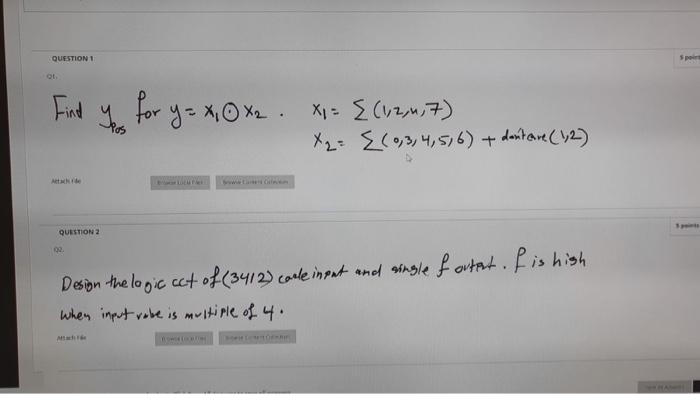 QUESTION 1
5 points
Q1.
Find y_pos for y = x₁ ⊙ x₂ . x₁ = Σ(1,2,4,7)
x₂ = Σ(0,3,4,5,6) + dontcare(1,2)
Attach File
Browse Local Files
Browse Content Collection
QUESTION 2
5 points
Q2.
Design the logic cct of (3412) code input and single f output. f is high
when input vabe is multiple of 4.
Attach File
Browse Local Files
Browse Content Collection